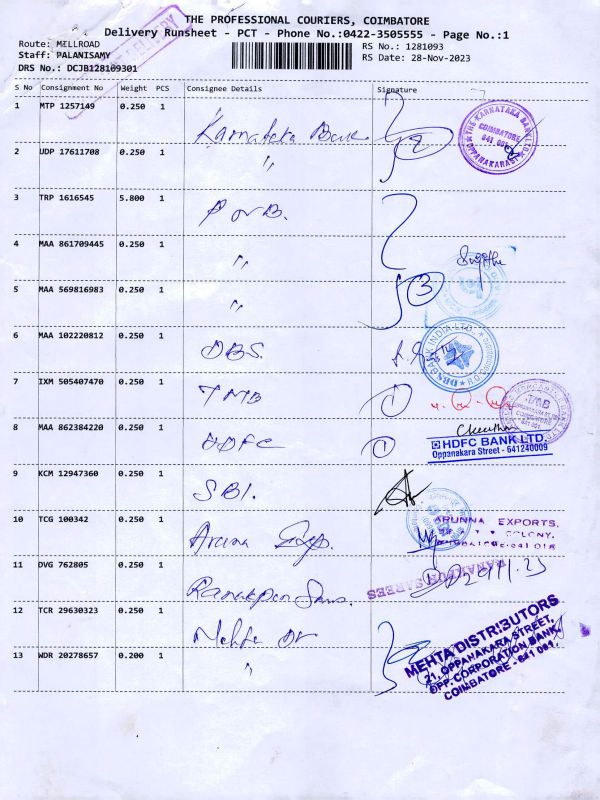 THE PROFESSIONAL COURIERS, COIMBATORE
Delivery Runsheet - PCT - Phone No.:0422-3505555 - Page No.:1
DELIVERY
Route: MELLROAD
Staff: PALANISAMY
DRS No.: DCJB128109301
RS No.: 1281093
RS Date: 28-Nov-2023
S No Consignment No Weight PCS Consignee Details Signature
1 MTP 1257149 0.250 1 Karnataka Bank
THE KARNATAKA BANK LTD.
COIMBATORE
641 001
OPPANAKARAST
2 UDP 17611708 0.250 1 " 2
3 TRP 1616545 5.800 1 PNB.
4 MAA 861709445 0.250 1 "
5 MAA 569816983 0.250 1 " 3
6 MAA 102220812 0.250 1 DBS.
DBS BANK INDIA LTD.
7 IXM 505407470 0.250 1 TMB 1
TMB
COIMBATORE
641 001
8 MAA 862384220 0.250 1 HDFC 1
HDFC BANK LTD.
Oppanakara Street - 641240009
9 KCM 12947360 0.250 1 SBI.
10 TCG 100342 0.250 1 Aruna Exp.
ARUNNA EXPORTS,
COLONY,
11 DVG 762805 0.250 1 Ranakpur Sarees.
RANAKPUR SAREES
29.11.23
12 TCR 29630323 0.250 1 Mehta Dr
13 WDR 20278657 0.200 1 "
MEHTA DISTRIBUTORS
21, OPPANAKARA STREET,
OPP. CORPORATION BANK,
COIMBATORE - 641 001.